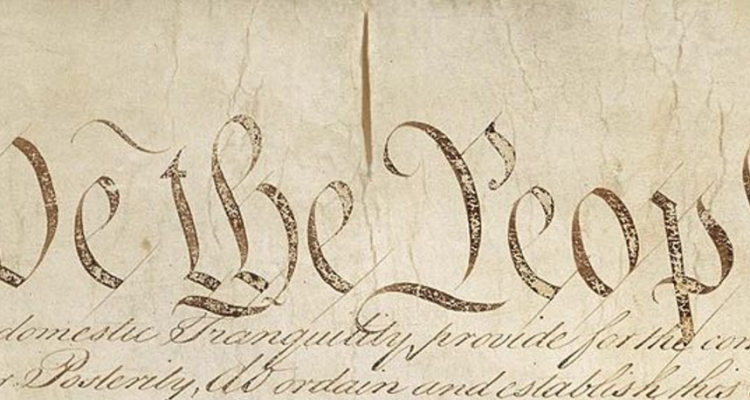 We the People
domestic Tranquility, provide for the com
r Posterity, do ordain and establish this